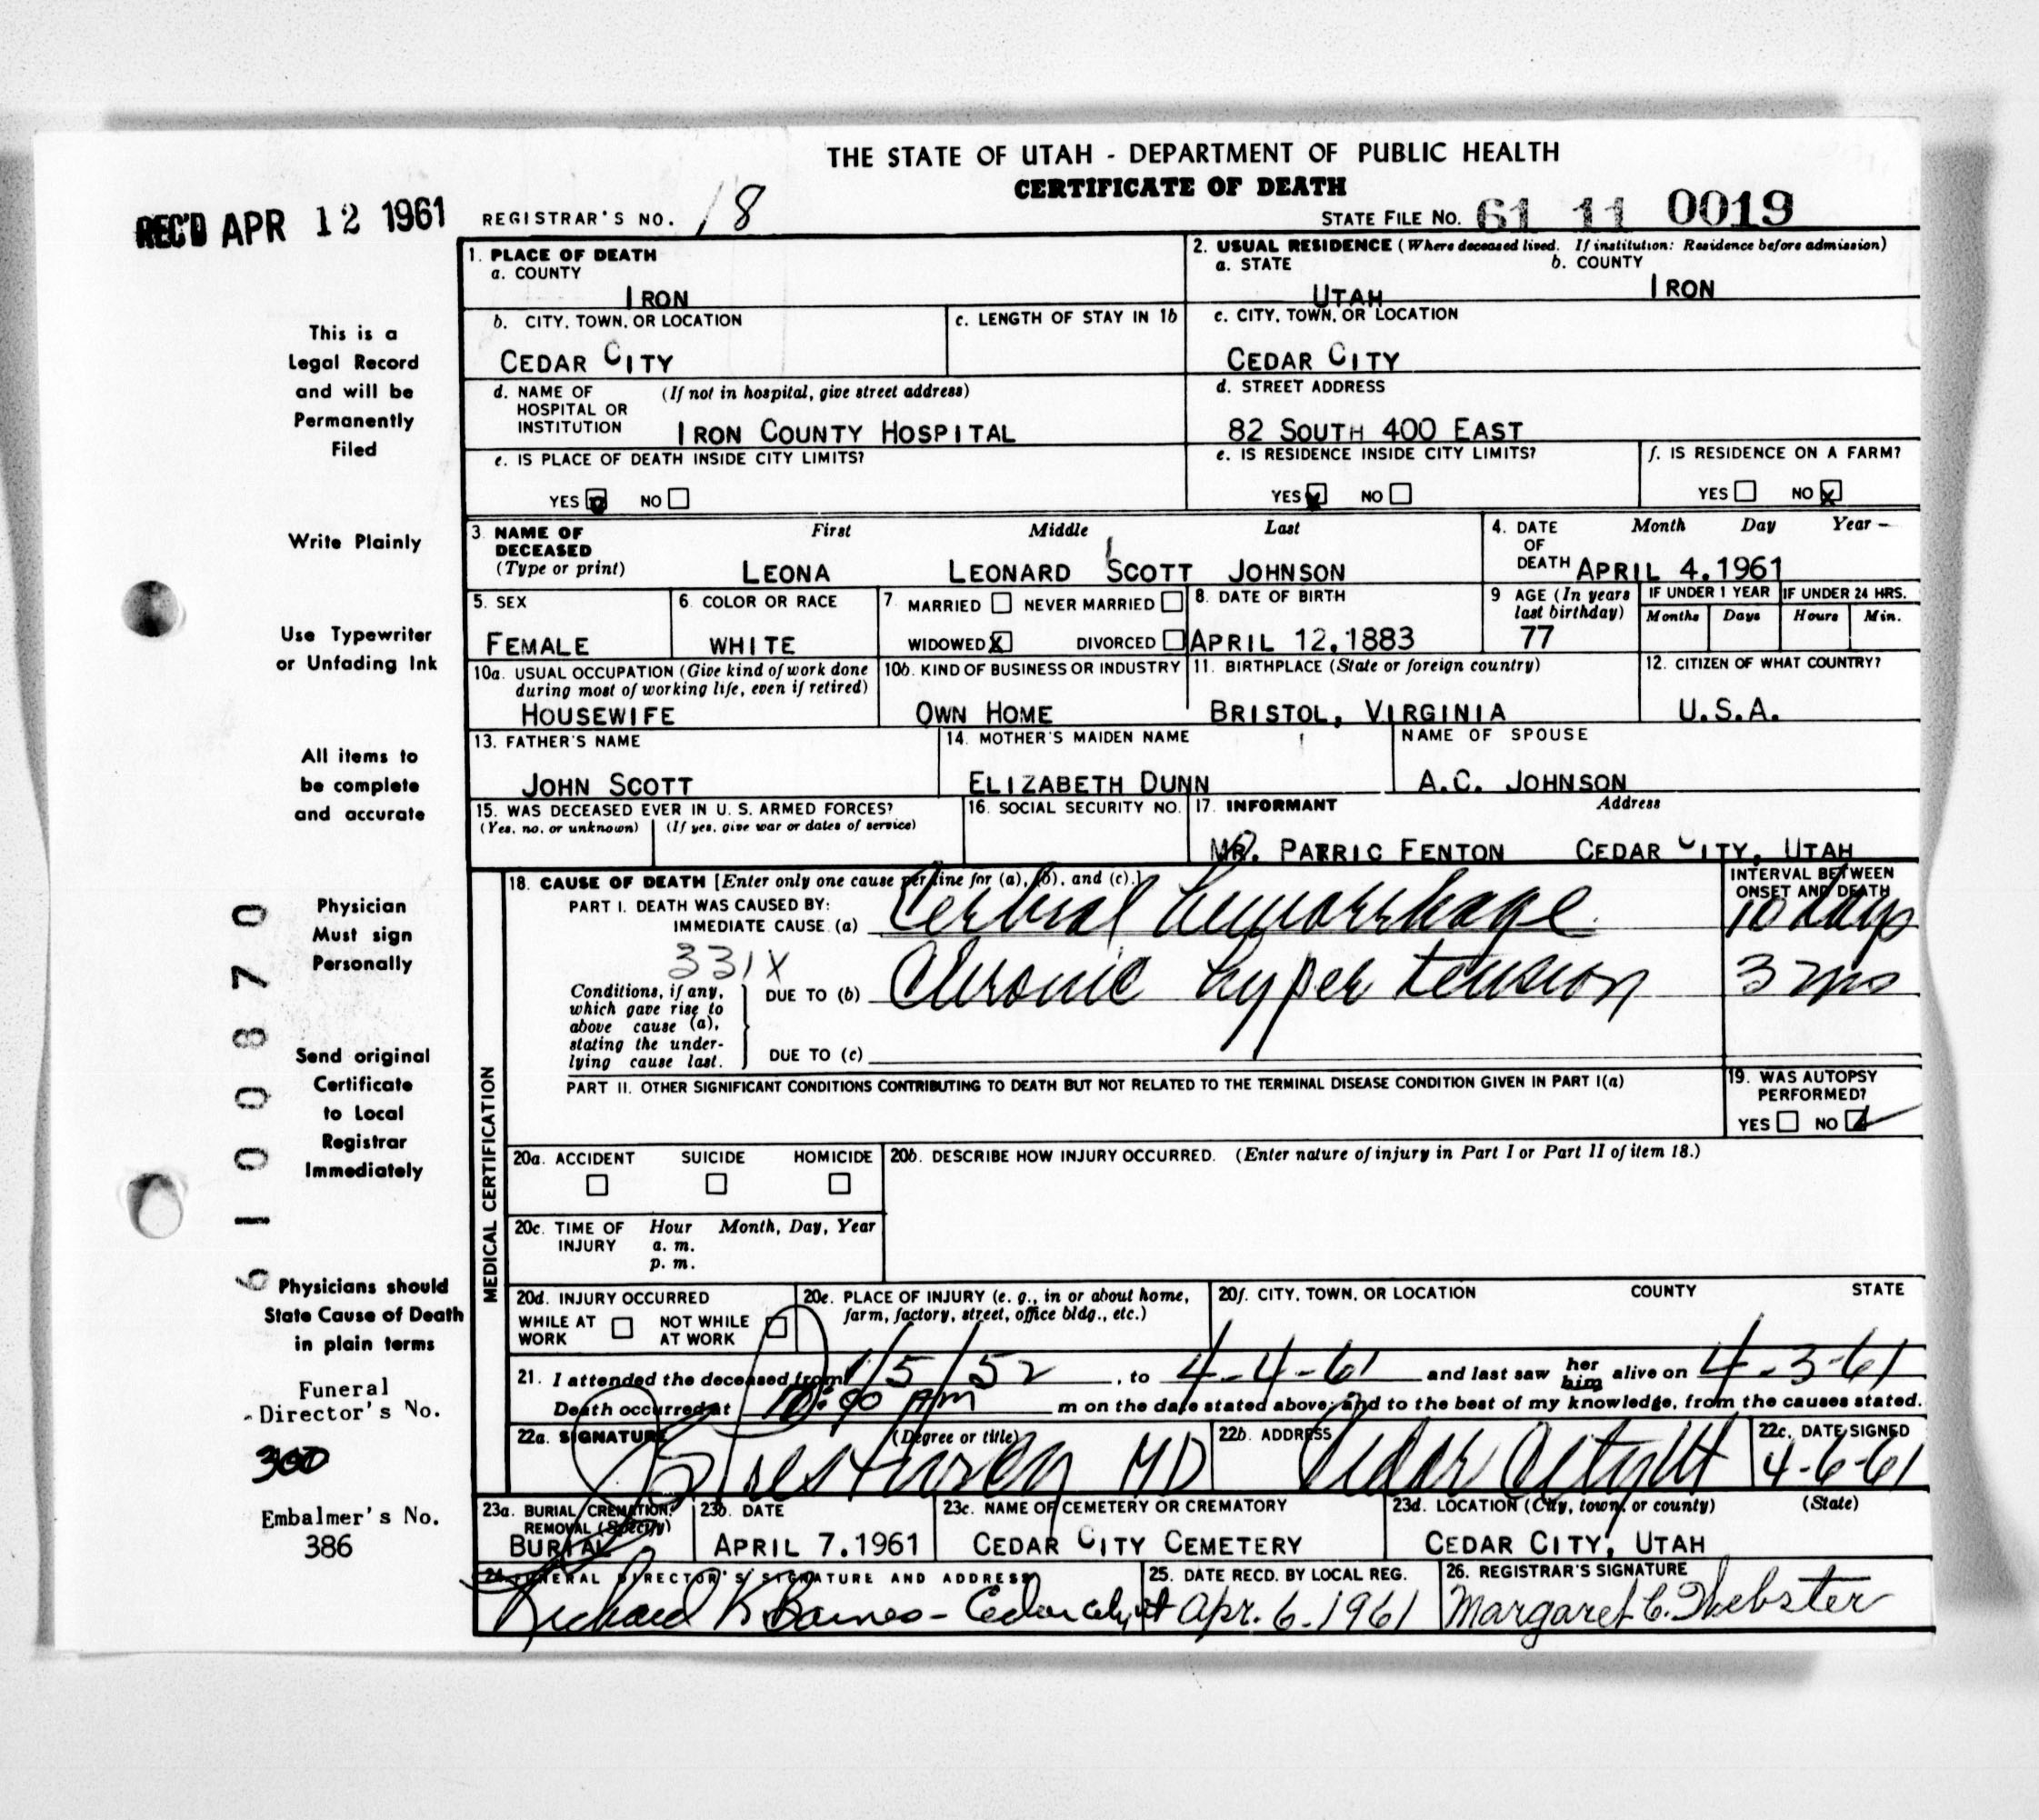 THE STATE OF UTAH - DEPARTMENT OF PUBLIC HEALTH
CERTIFICATE OF DEATH
REC'D APR 12 1961
REGISTRAR'S NO. 18
STATE FILE NO. 61 11 0019
1. PLACE OF DEATH
a. COUNTY
IRON
2. USUAL RESIDENCE (Where deceased lived. If institution: Residence before admission)
a. STATE b. COUNTY
UTAH IRON
b. CITY, TOWN, OR LOCATION
CEDAR CITY
c. LENGTH OF STAY IN 1b
c. CITY, TOWN, OR LOCATION
CEDAR CITY
d. NAME OF (If not in hospital, give street address)
HOSPITAL OR
INSTITUTION IRON COUNTY HOSPITAL
d. STREET ADDRESS
82 SOUTH 400 EAST
e. IS PLACE OF DEATH INSIDE CITY LIMITS?
YES NO
e. IS RESIDENCE INSIDE CITY LIMITS?
YES X NO
f. IS RESIDENCE ON A FARM?
YES NO X
3. NAME OF First Middle Last
DECEASED
(Type or print) LEONA LEONARD SCOTT JOHNSON
4. DATE Month Day Year
OF
DEATH APRIL 4.1961
5. SEX
FEMALE
6. COLOR OR RACE
WHITE
7. MARRIED NEVER MARRIED
WIDOWED X DIVORCED
8. DATE OF BIRTH
APRIL 12.1883
9 AGE (In years
last birthday)
77
IF UNDER 1 YEAR
Months Days
IF UNDER 24 HRS.
Hours Min.
10a. USUAL OCCUPATION (Give kind of work done
during most of working life, even if retired)
HOUSEWIFE
10b. KIND OF BUSINESS OR INDUSTRY
OWN HOME
11. BIRTHPLACE (State or foreign country)
BRISTOL, VIRGINIA
12. CITIZEN OF WHAT COUNTRY?
U.S.A.
13. FATHER'S NAME
JOHN SCOTT
14. MOTHER'S MAIDEN NAME
ELIZABETH DUNN
NAME OF SPOUSE
A.C. JOHNSON
15. WAS DECEASED EVER IN U. S. ARMED FORCES?
(Yes, no, or unknown) (If yes, give war or dates of service)
16. SOCIAL SECURITY NO.
17. INFORMANT Address
MR. PATRIC FENTON CEDAR CITY, UTAH
MEDICAL CERTIFICATION
18. CAUSE OF DEATH [Enter only one cause per line for (a), (b), and (c).]
PART I. DEATH WAS CAUSED BY:
IMMEDIATE CAUSE (a) Cerbral hemorrhage
331X
Conditions, if any,
which gave rise to
above cause (a),
stating the under-
lying cause last.
DUE TO (b) Chronic hyper tension
DUE TO (c)
INTERVAL BETWEEN
ONSET AND DEATH
10 days
3 mo
PART II. OTHER SIGNIFICANT CONDITIONS CONTRIBUTING TO DEATH BUT NOT RELATED TO THE TERMINAL DISEASE CONDITION GIVEN IN PART I(a)
19. WAS AUTOPSY
PERFORMED?
YES NO
20a. ACCIDENT SUICIDE HOMICIDE
20b. DESCRIBE HOW INJURY OCCURRED. (Enter nature of injury in Part I or Part II of item 18.)
20c. TIME OF Hour Month, Day, Year
INJURY a. m.
p. m.
20d. INJURY OCCURRED
WHILE AT NOT WHILE
WORK AT WORK
20e. PLACE OF INJURY (e. g., in or about home,
farm, factory, street, office bldg., etc.)
20f. CITY, TOWN, OR LOCATION COUNTY STATE
21. I attended the deceased from 1/5/52, to 4-4-61 and last saw her him alive on 4-3-61
Death occurred at AM m on the date stated above; and to the best of my knowledge, from the causes stated.
22a. SIGNATURE (Degree or title)
MD
22b. ADDRESS
Cedar City Ut
22c. DATE SIGNED
4-6-61
23a. BURIAL, CREMATION,
REMOVAL (Specify)
BURIAL
23b. DATE
APRIL 7.1961
23c. NAME OF CEMETERY OR CREMATORY
CEDAR CITY CEMETERY
23d. LOCATION (City, town, or county) (State)
CEDAR CITY, UTAH
24. FUNERAL DIRECTOR'S SIGNATURE AND ADDRESS
Richard K Barnes - Cedar City, Ut
25. DATE RECD. BY LOCAL REG.
Apr. 6. 1961
26. REGISTRAR'S SIGNATURE
Margaret C. Webster
This is a
Legal Record
and will be
Permanently
Filed
Write Plainly
Use Typewriter
or Unfading Ink
All items to
be complete
and accurate
Physician
Must sign
Personally
Send original
Certificate
to Local
Registrar
Immediately
Physicians should
State Cause of Death
in plain terms
Funeral
Director's No.
300
Embalmer's No.
386
6100870